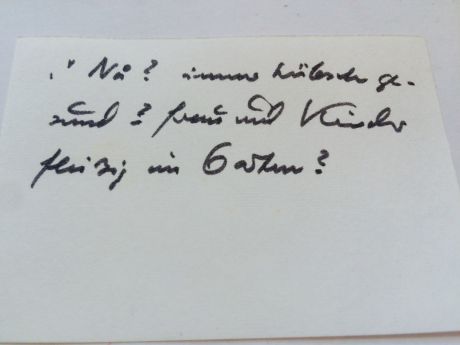 " Nå? immer hübsch ge-
sund? Frau und Kinder
fleißig im Garten?